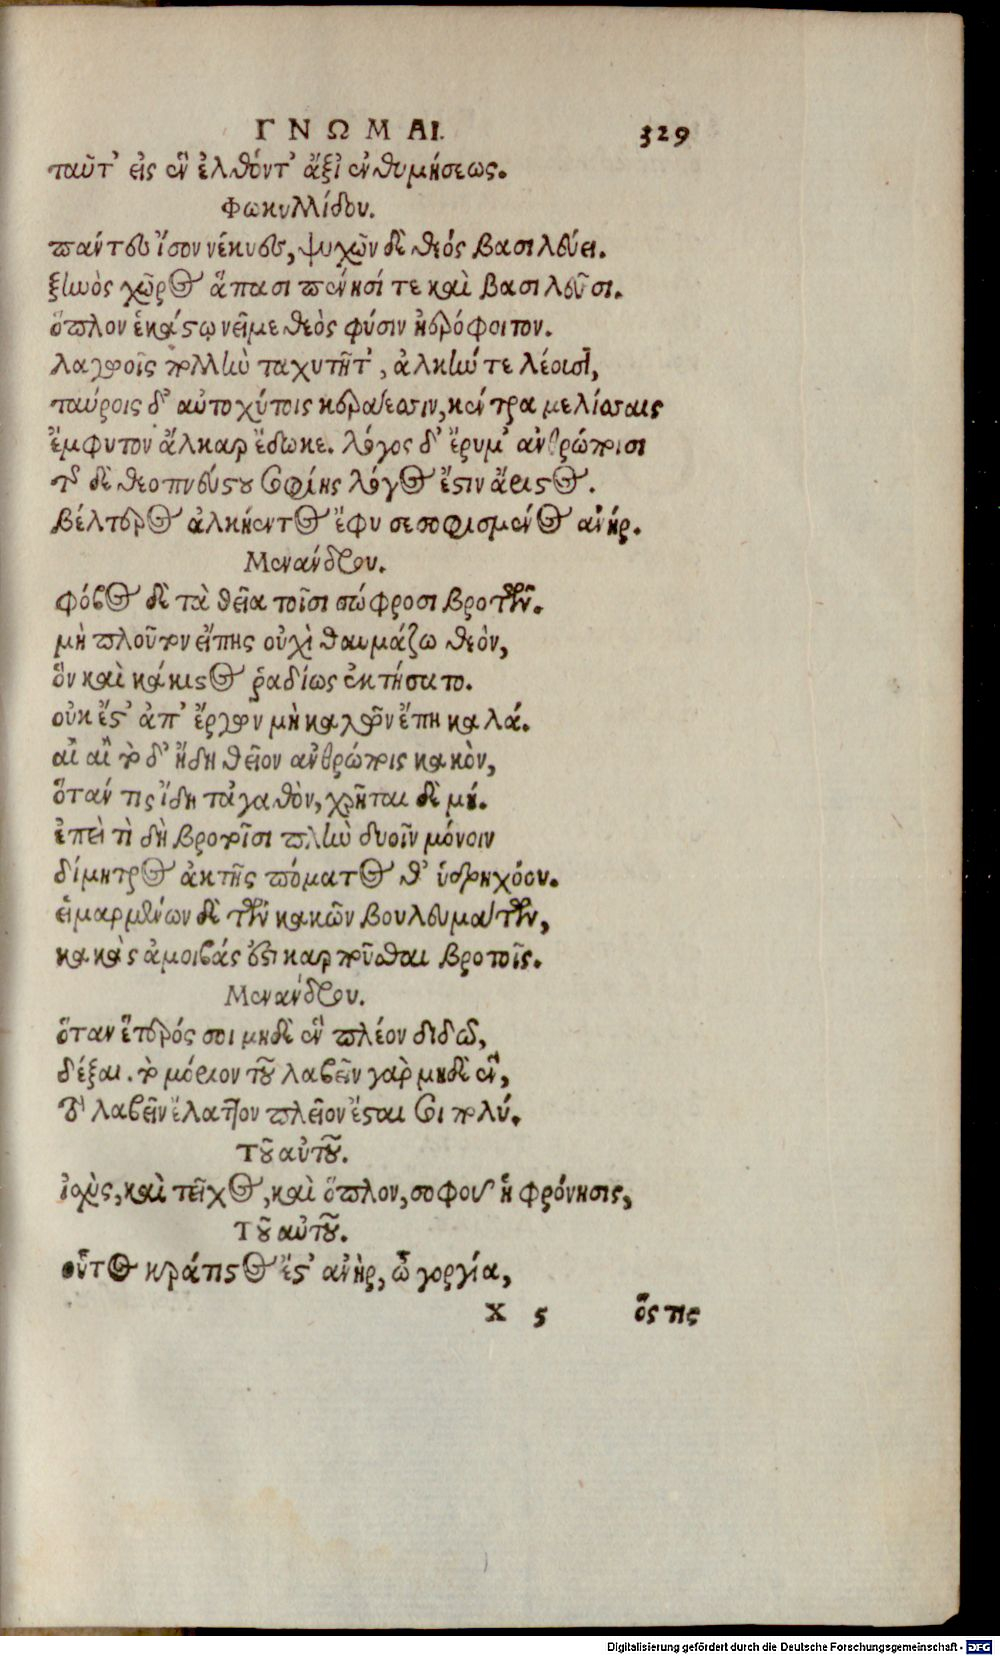 ΓΝΩΜΑΙ. 329
ταῦτ' εἰς ἓν ἐλθόντ' ἄξι' ἐνθυμήσεως.
Φωκυλλίδου.
πάντες ἴσον νέκυες, ψυχῶν δὲ θεὸς βασιλεύει.
ξυνὸς χῶρος ἅπασι πένησί τε καὶ βασιλεῦσι.
ὅπλον ἑκάστῳ νεῖμε θεὸς φύσιν ἠερόφοιτον.
λαγωοῖς πολλὴν ταχυτῆτ', ἀλκήν τε λέουσι,
ταύροις δ' αὐτοχύτοις κεράεσσιν, κέντρα μελίσσαις
ἔμφυτον ἄλκαρ ἔδωκε. λόγος δ' ἔρυμ' ἀνθρώποισι
τῆς δὲ θεοπνεύστου σοφίης λόγος ἔστιν ἄριστος.
βέλτερος ἀλκήεντος ἔφυ σεσοφισμένος ἀνήρ.
Μενάνδρου.
φόβος δὲ τὰ θεῖα τοῖσι σώφροσι βροτῶν.
μὴ πλοῦτον εἴπης οὐχὶ θαυμάζω θεὸν,
ὃν καὶ κάκιστος ῥαδίως ἐκτήσατο.
οὐκ ἔστ' ἀπ' ἔργων μὴ καλῶν ἔπη καλά.
αἶ αἶ τὸ δ' ἤδη θεῖον ἀνθρώποις κακὸν,
ὅταν τις ἴδη τἀγαθὸν, χρῆται δὲ μή.
ἐπεὶ τὶ δὴ βροτοῖσι πλὴν δυοῖν μόνοιν
δίμητρος ἀκτῆς πόματος θ' ὑδρηχόου.
εἱμαρμένων δὲ τῶν κακῶν βουλευμάτων,
κακὰς ἀμοιβάς ἐστι καρποῦσθαι βροτοῖς.
Μενάνδρου.
ὅταν ἕτερός σοι μηδὲ ἓν πλέον διδῶ,
δέξαι. τὸ μόριον τοῦ λαβεῖν γὰρ μηδὲ ἓν,
τὸ λαβεῖν ἔλαττον πλεῖον ἔσται σοι πολύ.
Τοῦ αὐτοῦ.
ἰσχὺς, καὶ τεῖχος, καὶ ὅπλον, σοφοῦ ἡ φρόνησις,
Τοῦ αὐτοῦ.
οὗτος κράτιστος ἔστ' ἀνὴρ, ὦ γοργία,
X 5 ὅς τις
Digitalisierung gefördert durch die Deutsche Forschungsgemeinschaft - DFG